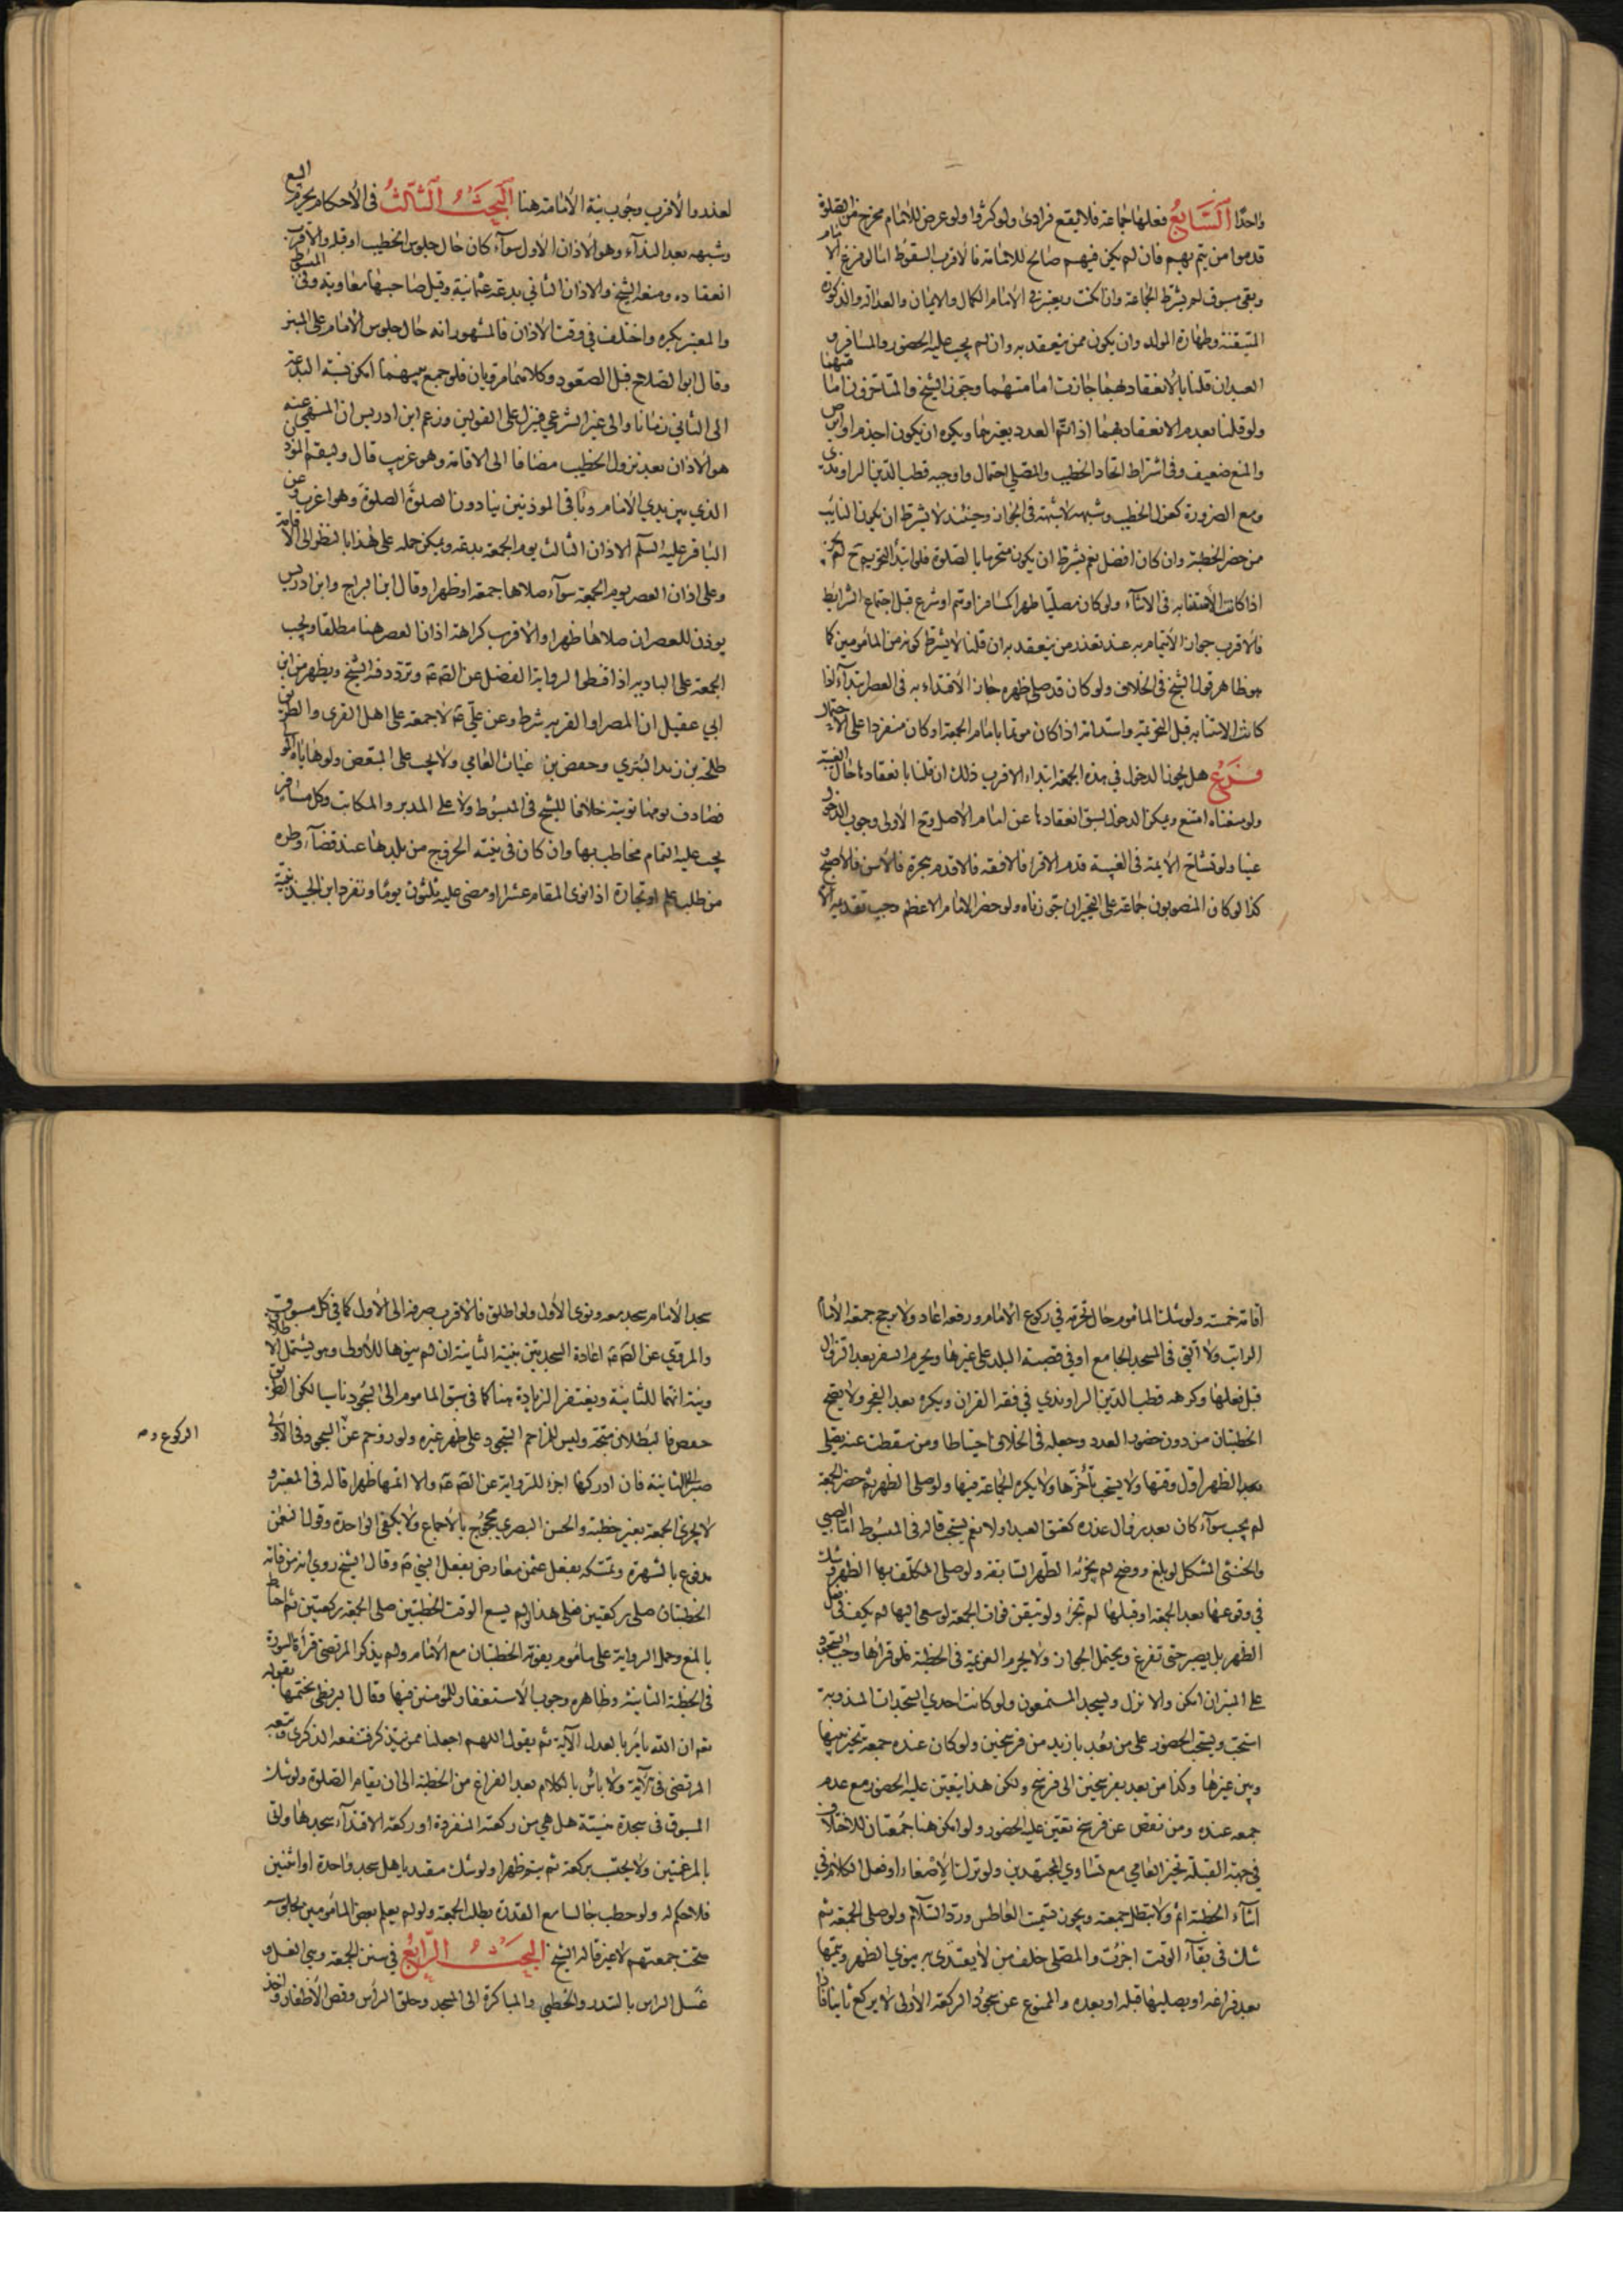 واحدًا السَّابِعُ فعلها جماعة فلا يقع فرادى ولو كثروا ولو عرض للامام مخرج من الصلوة
قدموا من يتم بهم فان لم يكن فيهم صالح للامامة فالاقرب السقوط اما لو فرغ الامام
وبقي مسبوق لم يشترط الجماعة وان كثر ويعتبر في الامام الكمال والايمان والعدالة والذكورة
المتيقنة وطهارة المولد وان يكون ممن ينعقد به وان لم يجب عليه الحضور والمسافر و
العبد ان قلنا بالانعقاد بهما جازت امامتهما وجوز الشيخ والمتاخرون امامتهما
ولو قلنا بعدم الانعقاد بهما اذا تم العدد بغيرهما ويكره ان يكون اجذم او ابرص
والمنع ضعيف وفي اشتراط اتحاد الخطيب والمصلي احتمال واوجبه قطب الدين الراوندي
ومع الضرورة كعزل الخطيب وشبهه لا شبهة في الجواز وحينئذ لا يشترط ان يكون النايب
ممن حضر الخطبة وان كان افضل نعم يشترط ان يكون متحرما بالصلوة فلو ابتدأ التحريم ح لم يجز
اذا كانت الاستنابة في الاثناء ولو كان مصليا ظهرا كمسافر او متم او شرع قبل اجتماع الشرايط
فالاقرب جواز الايتمام به عند تعذر من ينعقد به ان قلنا لا يشترط كونه من المأمومين كما
هو ظاهر قول الشيخ في الخلاف ولو كان قد صلى ظهره جاز الاقتداء به في العصر ابتداء اذا
كانت الاستنابة قبل التحريمة واستدامة اذا كان مؤتما بامام الجمعة او كان منفردا على الاحتمال
فَرْعٌ هل يجوز الدخول في هذه الجمعة ابتداء الاقرب ذلك ان قلنا بانعقادها حال الغيبة
ولو منعناه امتنع ويمكن الدخول لسبق انعقادها عن امام الاصل وتح الاولى وجوب الدخول
عينا ولو تشاح الايمة في الغيبة قدم الاقرا فالافقه فالاقدم هجرة فالاسن فالاصبح و
كذا لو كان المنصوبون جماعة على التخيير ان جوزناه ولو حضر الامام الاعظم وجب تقديمه الا
لعذر والاقرب وجوب نية الامامة هنا اَلْبَحْثُ الثَّالِثُ في الاحكام يحرم البيع
وشبهه بعد النداء وهو الاذان الاول سواء كان حال جلوس الخطيب او قبله والاقرب
انعقاده ومنعه الشيخ والاذان الثاني بدعة عثمانية وقيل صاحبها معاوية وفي المبسوط
والمعتبر يكره واختلف في وقت الاذان فالمشهور انه حال جلوس الامام على المنبر
وقال ابو الصلاح قبل الصعود وكلاهما مرويان فلو جمع بينهما امكن نسبة البدعة
الى الثاني زمانا والى غير الشرعي فينزل على القولين وزعم ابن ادريس ان المنهي عنه
هو الاذان بعد نزول الخطيب مضافا الى الاقامة وهو غريب قال وليقم المؤذن
الذي بين يدي الامام وباقي الموذنين ينادون الصلوة الصلوة وهو اغرب وعن
الباقر عليه السلم الاذان الثالث يوم الجمعة بدعة ويمكن حمله على هذا بالنظر الى الاقامة
وعلى اذان العصر يوم الجمعة سواء صلاها جمعة او ظهرا وقال ابن البراج وابن ادريس
يوذن للعصر ان صلاها ظهرا والاقرب كراهة اذان العصر هنا مطلقا ويجب
الجمعة على البادية اذا قطنوا لرواية الفضل عن الصّ عَ وتردد فيه الشيخ ويظهر من ابن
ابي عقيل ان المصر او القرية شرط وعن عليّ عَ لا جمعة على اهل القرى والطريق
طلحة بن زيد البتري وحفص بن غياث العامي ولا يجب على المبعض ولو هاياه المولى
فصادف يومها نوبته خلافا للشيخ في المبسوط ولا على المدبر والمكاتب وكل مسافر
يجب عليه التمام مخاطب بها وان كان في نيته الخروج من بلدها عند قضاء وطره
من طلب علم او تجارة اذا نوى المقام عشرا او مضى عليه ثلثون يوما وتفرد ابن الجنيد بنية
اقامة خمسة ولو شك المأموم حال تحرمه في ركوع الامام ورفعه اعاد ولا يرجح جمعة الامام
الراتب ولا التي في المسجد الجامع او في قصبة البلد على غيرها ويحرم السفر بعد الزوال
قبل فعلها وكرهه قطب الدين الراوندي في فقه القران ويكره بعد الفجر ولا يصح
الخطبتان من دون حضور العدد وجعله في الخلاف احتياطا ومن سقطت عنه يصلي
الظهر اول وقتها ولا يستحب تأخرها ولا يكره الجماعة فيها ولو صلى الظهر ثم حضر الجمعة
لم يجب سواء كان بعد زوال عذره كعتق العبد اولا نعم يستحب قاله في المبسوط اما الصبي
والخنثى المشكل لو بلغ ووضح لم يجزئه الظهر السابقة ولو صلى المكلف بها الظهر وشك
في وقوعها بعد الجمعة او قبلها لم تجز ولو تيقن فوات الجمعة لو سعى اليها لم يكف في فعل
الظهر بل يصبر حتى تفرغ ويحتمل الجواز ولا يحرم العزيمة في الخطبة فلو قراها وجب السجود
على المنبر ان امكن والا نزل ويسجد المستمعون ولو كانت احدى السجدات المندوبة
استحب ويستحب الحضور على من بعد بازيد من فرسخين ولو كان عنده جمعة تخير بينها
وبين غيرها وكذا من بعد بفرسخين الى فرسخ ولكن هذا يتعين عليه الحضور مع عدم
جمعة عنده ومن نقص عن فرسخ تعين عليه الحضور ولو امكن هنا جمعتان للاختلاف
في جهة القبلة تخير العامي مع تساوي المجتهدين ولو ترك الاصغاء او فعل الكلام في
اثناء الخطبة اثم ولا تبطل جمعته ويجوز تسميت العاطس ورد السلام ولو صلى الجمعة ثم
شك في بقاء الوقت اجزئت والمصلي خلف من لا يقتدى به ينوي الظهر ويتمها
بعد فراغه او يصليها قبله او بعده والممنوع عن سجود الركعة الاولى لا يركع ثانيا فاذا
سجد الامام سجد معه ونوى الاول ولو اطلق فالاقرب صرفه الى الاول كما في كل مسبوق
والمروي عن الصّ عَ اعادة السجدتين بنية الثانية ان لم ينوها للاولى وهو يشتمل الاطلاق
ونية انها للثانية ويغتفر الزيادة هنا كما في سبق المأموم الى السجود ناسيا لكن الطريق
حفص فالبطلان متجه وليس للمزاحم السجود على ظهر غيره ولو زوحم عن السجود في الاولى
الركوع و صح
صبر الى الثانية فان ادركها اجزء للرواية عن الصّ عَ والا اتمها ظهرا قاله في المعتبر و
لا يجزئ الجمعة بغير خطبة والحسن البصري محجوج بالاجماع ولا يكفي الواحدة وقول النعمن
مدفوع بالشهرة وتمسكه بفعل عثمن معارض بفعل النبي صَ وقال الشيخ روي انه من فاته
الخطبتان صلى ركعتين فعلى هذا لو لم يسع الوقت الخطبتين صلى الجمعة ركعتين ثم احتاط
بالمنع وحمل الرواية على مأموم يفوته الخطبتان مع الامام ولم يذكر المرتضى قرأة السورة
في الخطبة الثانية وظاهره وجوب الاستغفار للمؤمنين فيها وقال البزنطي يختمها بقوله
تع ان الله يأمر بالعدل الآية ثم يقول اللهم اجعلنا ممن يتذكر فتنفعه الذكرى وتبعه
المرتضى في الآية ولا باس بالكلام بعد الفراغ من الخطبة الى ان يقام الصلوة ولو شك
المسبوق في سجدة منسيّة هل هي من ركعته المنفردة او ركعة الاقتداء سجدها واتى
بالمرغمتين ولا يحتسب بركعة ثم يتم ظهرا ولو شك مقتديا هل سجد واحدة او اثنتين
فلا حكم له ولو خطب جالسا مع القدرة بطلت الجمعة ولو لم يعلم بعض المأمومين بجلوسه
صحت جمعتهم لا غير قاله الشيخ اَلْبَحْثُ الرَّابِعُ في سنن الجمعة وهي الغسل و
غسل الراس بالسدر والخطمي والمباكرة الى المسجد وحلق الرأس وقص الاظفار واخذ